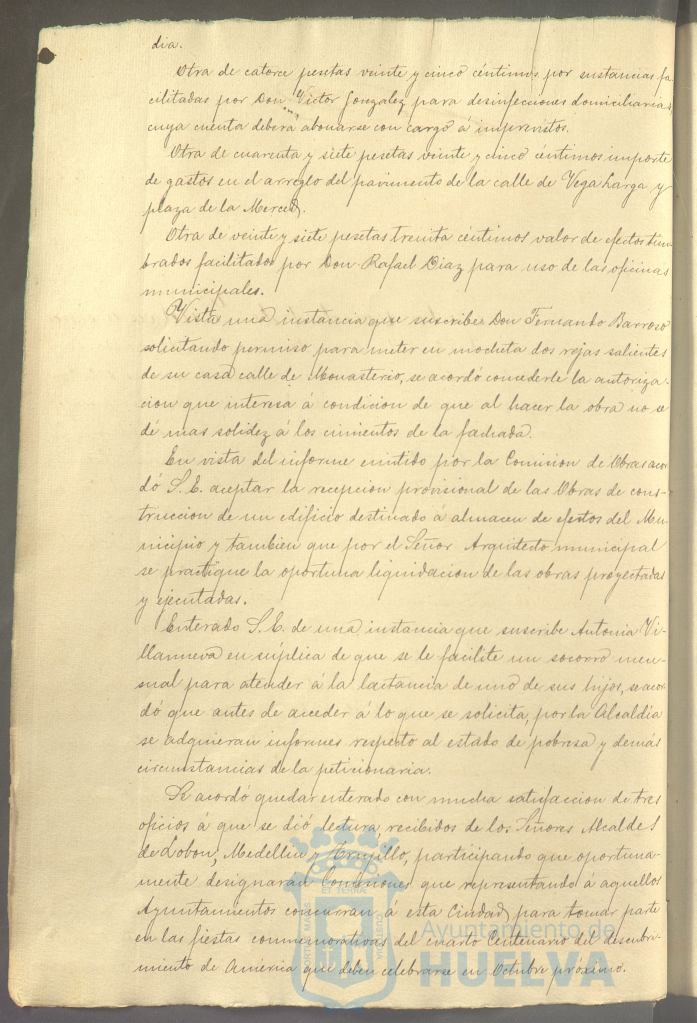 dia.
Otra de catorce pesetas veinte y cinco céntimos por sustancias fa-
cilitadas por Don Victor Gonzalez para desinfecciones domiciliarias
cuya cuenta deberá abonarse con cargo á imprevistos.
Otra de cuarenta y siete pesetas veinte y cinco céntimos importe
de gastos en el arreglo del pavimento de la calle de Vega Larga y
plaza de la Merced.
Otra de veinte y siete pesetas treinta céntimos valor de efectos tim-
brados facilitados por Don Rafael Diaz para uso de las oficinas
municipales.
Vista una instancia que suscribe Don Fernando Barroso
solicitando permiso para meter en mocheta dos rejas salientes
de su casa calle de Monasterio, se acordó concederle la autoriza-
cion que interesa á condicion de que al hacer la obra no se
dé mas solidez á los cimientos de la fachada.
En vista del informe emitido por la Comision de Obras acor-
dó S. E. aceptar la recepcion provisional de las Obras de cons-
truccion de un edificio destinado á almacen de efectos del Mu-
nicipio y tambien que por el Señor Arquitecto municipal
se practique la oportuna liquidacion de las obras proyectadas
y ejecutadas.
Enterado S. E. de una instancia que suscribe Antonia Vi-
llanueva en súplica de que se le facilite un socorro men-
sual para atender á la lactancia de uno de sus hijos, se acor-
dó que antes de acceder á lo que se solicita, por la Alcaldía
se adquieran informes respecto al estado de pobresa y demás
circunstancias de la peticionaria.
Se acordó quedar enterado con mucha satisfaccion de tres
oficios á que se dió lectura, recibidos de los Señores Alcaldes
de Lobon, Medellin y Trujillo, participando que oportuna-
mente designarán Comisiones que representando á aquellos
Ayuntamientos concurran á esta Ciudad para tomar parte
en las fiestas conmemorativas del cuarto Centenario del descubri-
miento de América que deben celebrarse en Octubre próximo.
Ayuntamiento de
HUELVA
PORTUS MARIS ET TERRAE CUSTODIA